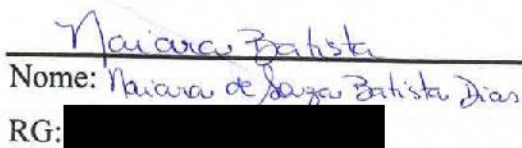 Naiara Batista
Nome: Naiara de Souza Batista Dias
RG: